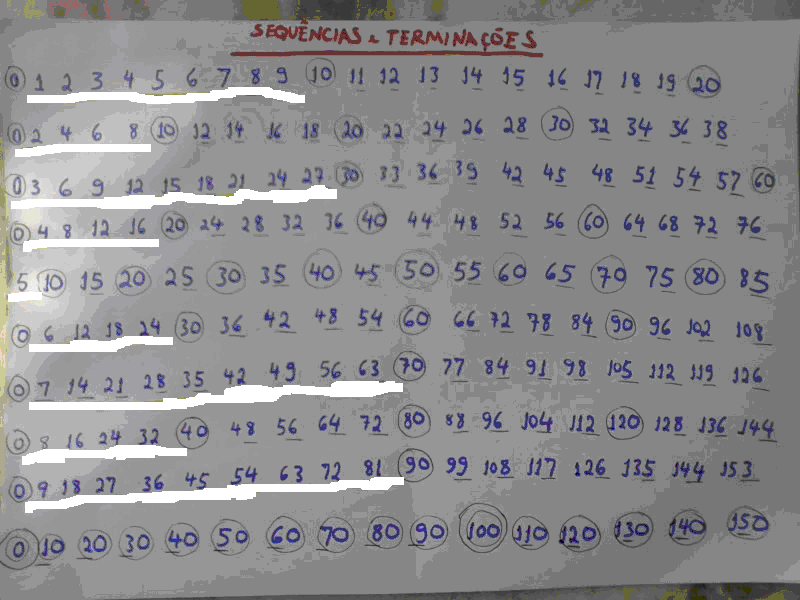 SEQUÊNCIAS e TERMINAÇÕES
0 1 2 3 4 5 6 7 8 9 10 11 12 13 14 15 16 17 18 19 20
0 2 4 6 8 10 12 14 16 18 20 22 24 26 28 30 32 34 36 38
0 3 6 9 12 15 18 21 24 27 30 33 36 39 42 45 48 51 54 57 60
0 4 8 12 16 20 24 28 32 36 40 44 48 52 56 60 64 68 72 76
5 10 15 20 25 30 35 40 45 50 55 60 65 70 75 80 85
0 6 12 18 24 30 36 42 48 54 60 66 72 78 84 90 96 102 108
0 7 14 21 28 35 42 49 56 63 70 77 84 91 98 105 112 119 126
0 8 16 24 32 40 48 56 64 72 80 88 96 104 112 120 128 136 144
0 9 18 27 36 45 54 63 72 81 90 99 108 117 126 135 144 153
0 10 20 30 40 50 60 70 80 90 100 110 120 130 140 150